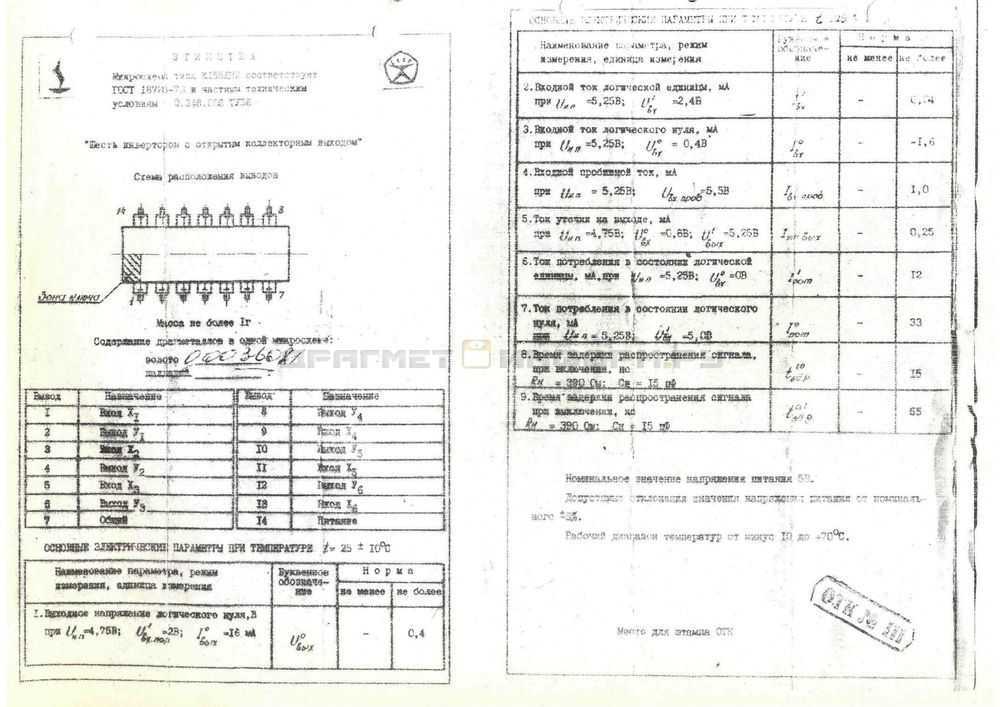 ЭТИКЕТКА
Микросхема типа К155ЛН2 соответствует
ГОСТ и частным техническим
условиям
"Шесть инверторов с открытым коллекторным выходом"
Схема расположения выводов
14 8
Зона ключа
1 7
Масса не более 1г
Содержание драгметаллов в одной микросхеме:
золото
палладий
Вывод Назначение Вывод Назначение
1 Вход X1 8 Выход У4
2 Выход У1 9 Вход X4
3 Вход X2 10 Выход У5
4 Выход У2 11 Вход X5
5 Вход X3 12 Выход У6
6 Выход У3 13 Вход X6
7 Общий 14 Питание
ОСНОВНЫЕ ЭЛЕКТРИЧЕСКИЕ ПАРАМЕТРЫ ПРИ ТЕМПЕРАТУРЕ t = 25 ± 10°C
Наименование параметра, режим измерения, единица измерения Буквенное обозначение Норма
не менее не более
1. Выходное напряжение логического нуля, В
при Uип=4,75В; U¹вх.пор=2В; I⁰вых=16 мА U⁰вых - 0,4
ОСНОВНЫЕ ЭЛЕКТРИЧЕСКИЕ ПАРАМЕТРЫ ПРИ
Наименование параметра, режим измерения, единица измерения Буквенное обозначение Норма
не менее не более
2. Входной ток логической единицы, мА
при Uип=5,25В; U¹вх=2,4В I¹вх - 0,04
3. Входной ток логического нуля, мА
при Uип=5,25В; U⁰вх = 0,4В I⁰вх - -1,6
4. Входной пробивной ток, мА
при Uип = 5,25В; Uвх проб=5,5В Iвх проб - 1,0
5. Ток утечки на выходе, мА
при Uип=4,75В; U⁰вх=0,8В; U¹вых=5,25В Iут вых - 0,25
6. Ток потребления в состоянии логической
единицы, мА, при Uип=5,25В; U⁰вх=0В I¹пот - 12
7. Ток потребления в состоянии логического
нуля, мА
при Uип=5,25В; U¹вх=5,0В I⁰пот - 33
8. Время задержки распространения сигнала,
при включении, нс
Rн = 390 Ом; Сн = 15 пФ - 15
9. Время задержки распространения сигнала
при выключении, нс
Rн = 390 Ом; Сн = 15 пФ - 55
Номинальное значение напряжения питания 5В.
Допустимые отклонения значения напряжения питания от номиналь-
ного ±5%.
Рабочий диапазон температур от минус 10 до +70°C.
Место для штампа ОТК
ОТК №